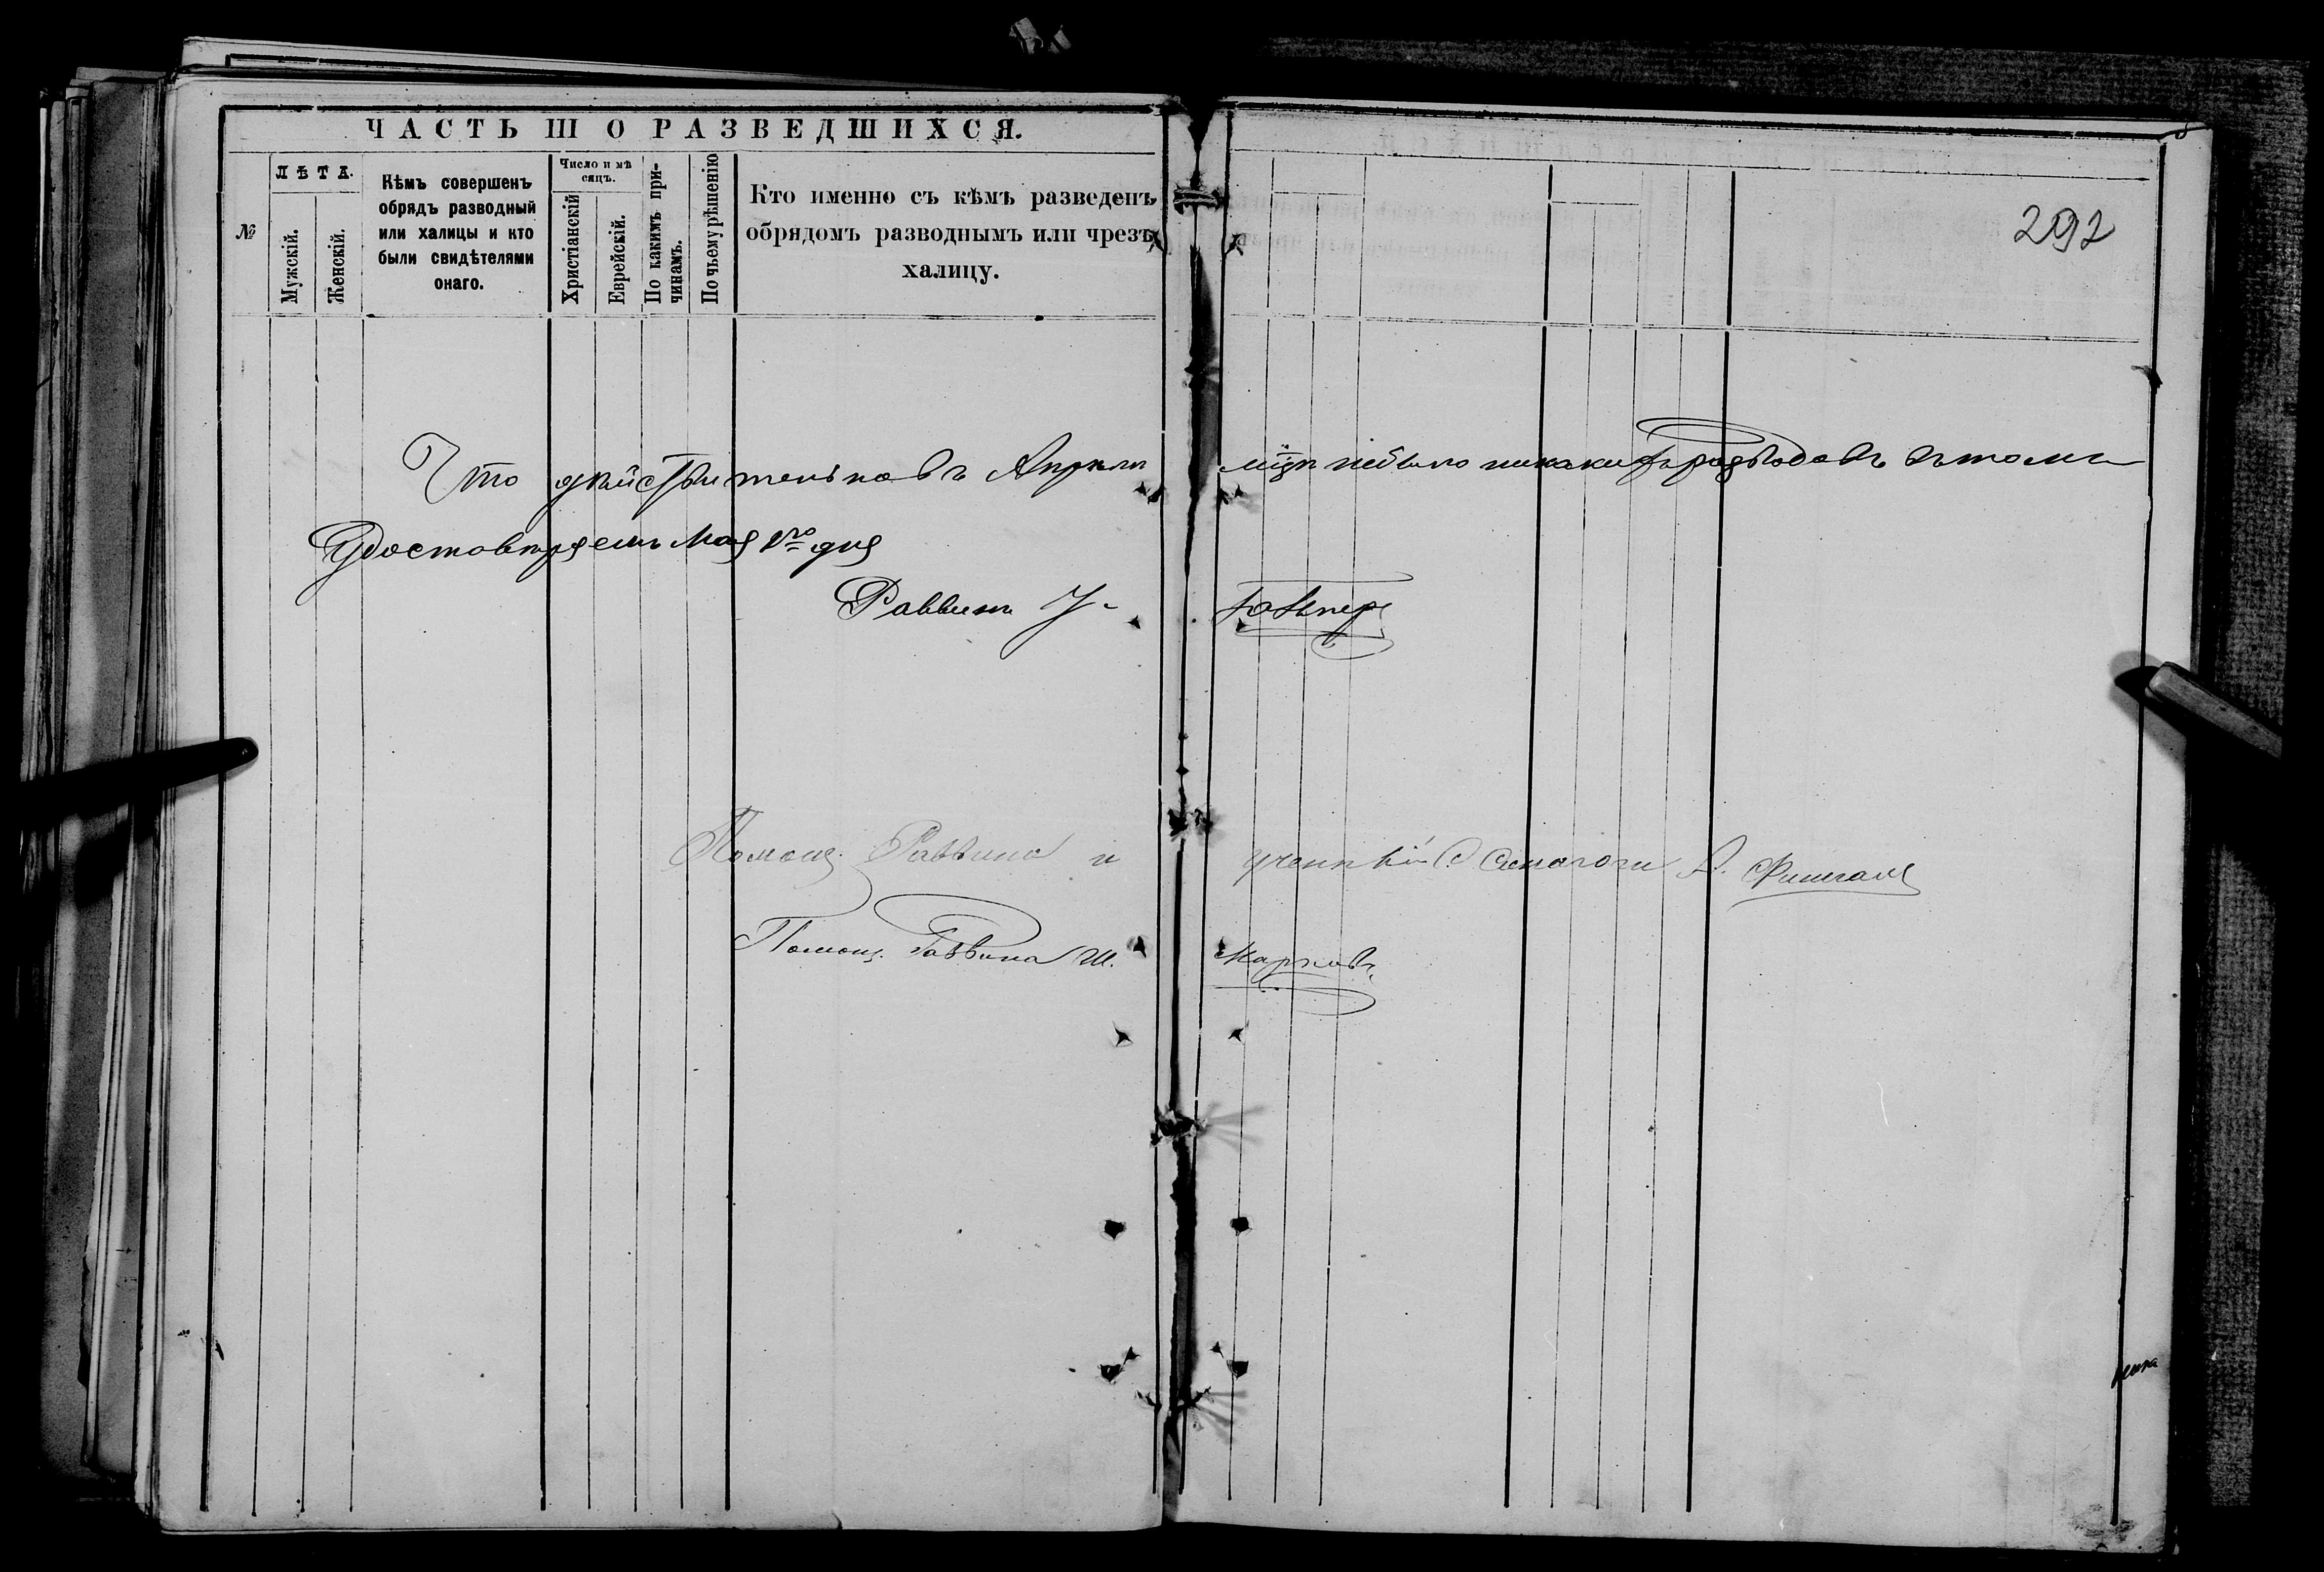 ЧАСТЬ III О РАЗВЕДШИХСЯ.
№
ЛѢТА.
Мужскій.
Женскій.
Кѣмъ совершенъ
обрядъ разводный
или халицы и кто
были свидѣтелями
онаго.
Число и мѣ
сяцъ.
Христіанскій
Еврейскій.
По какимъ при-
чинамъ.
По чьему рѣшенію
Кто именно съ кѣмъ разведенъ
обрядомъ разводнымъ или чрезъ
халицу.
292
Что дѣйствительно въ Апрѣлѣ м҃цѣ небыло никакихъ разводовъ въ томъ
Удостовѣряемъ Мая 1го дня
Раввинъ
Помощ. Раввина и ученый С. Синагоги А.
Помощ. Раввина Ш. Марковъ